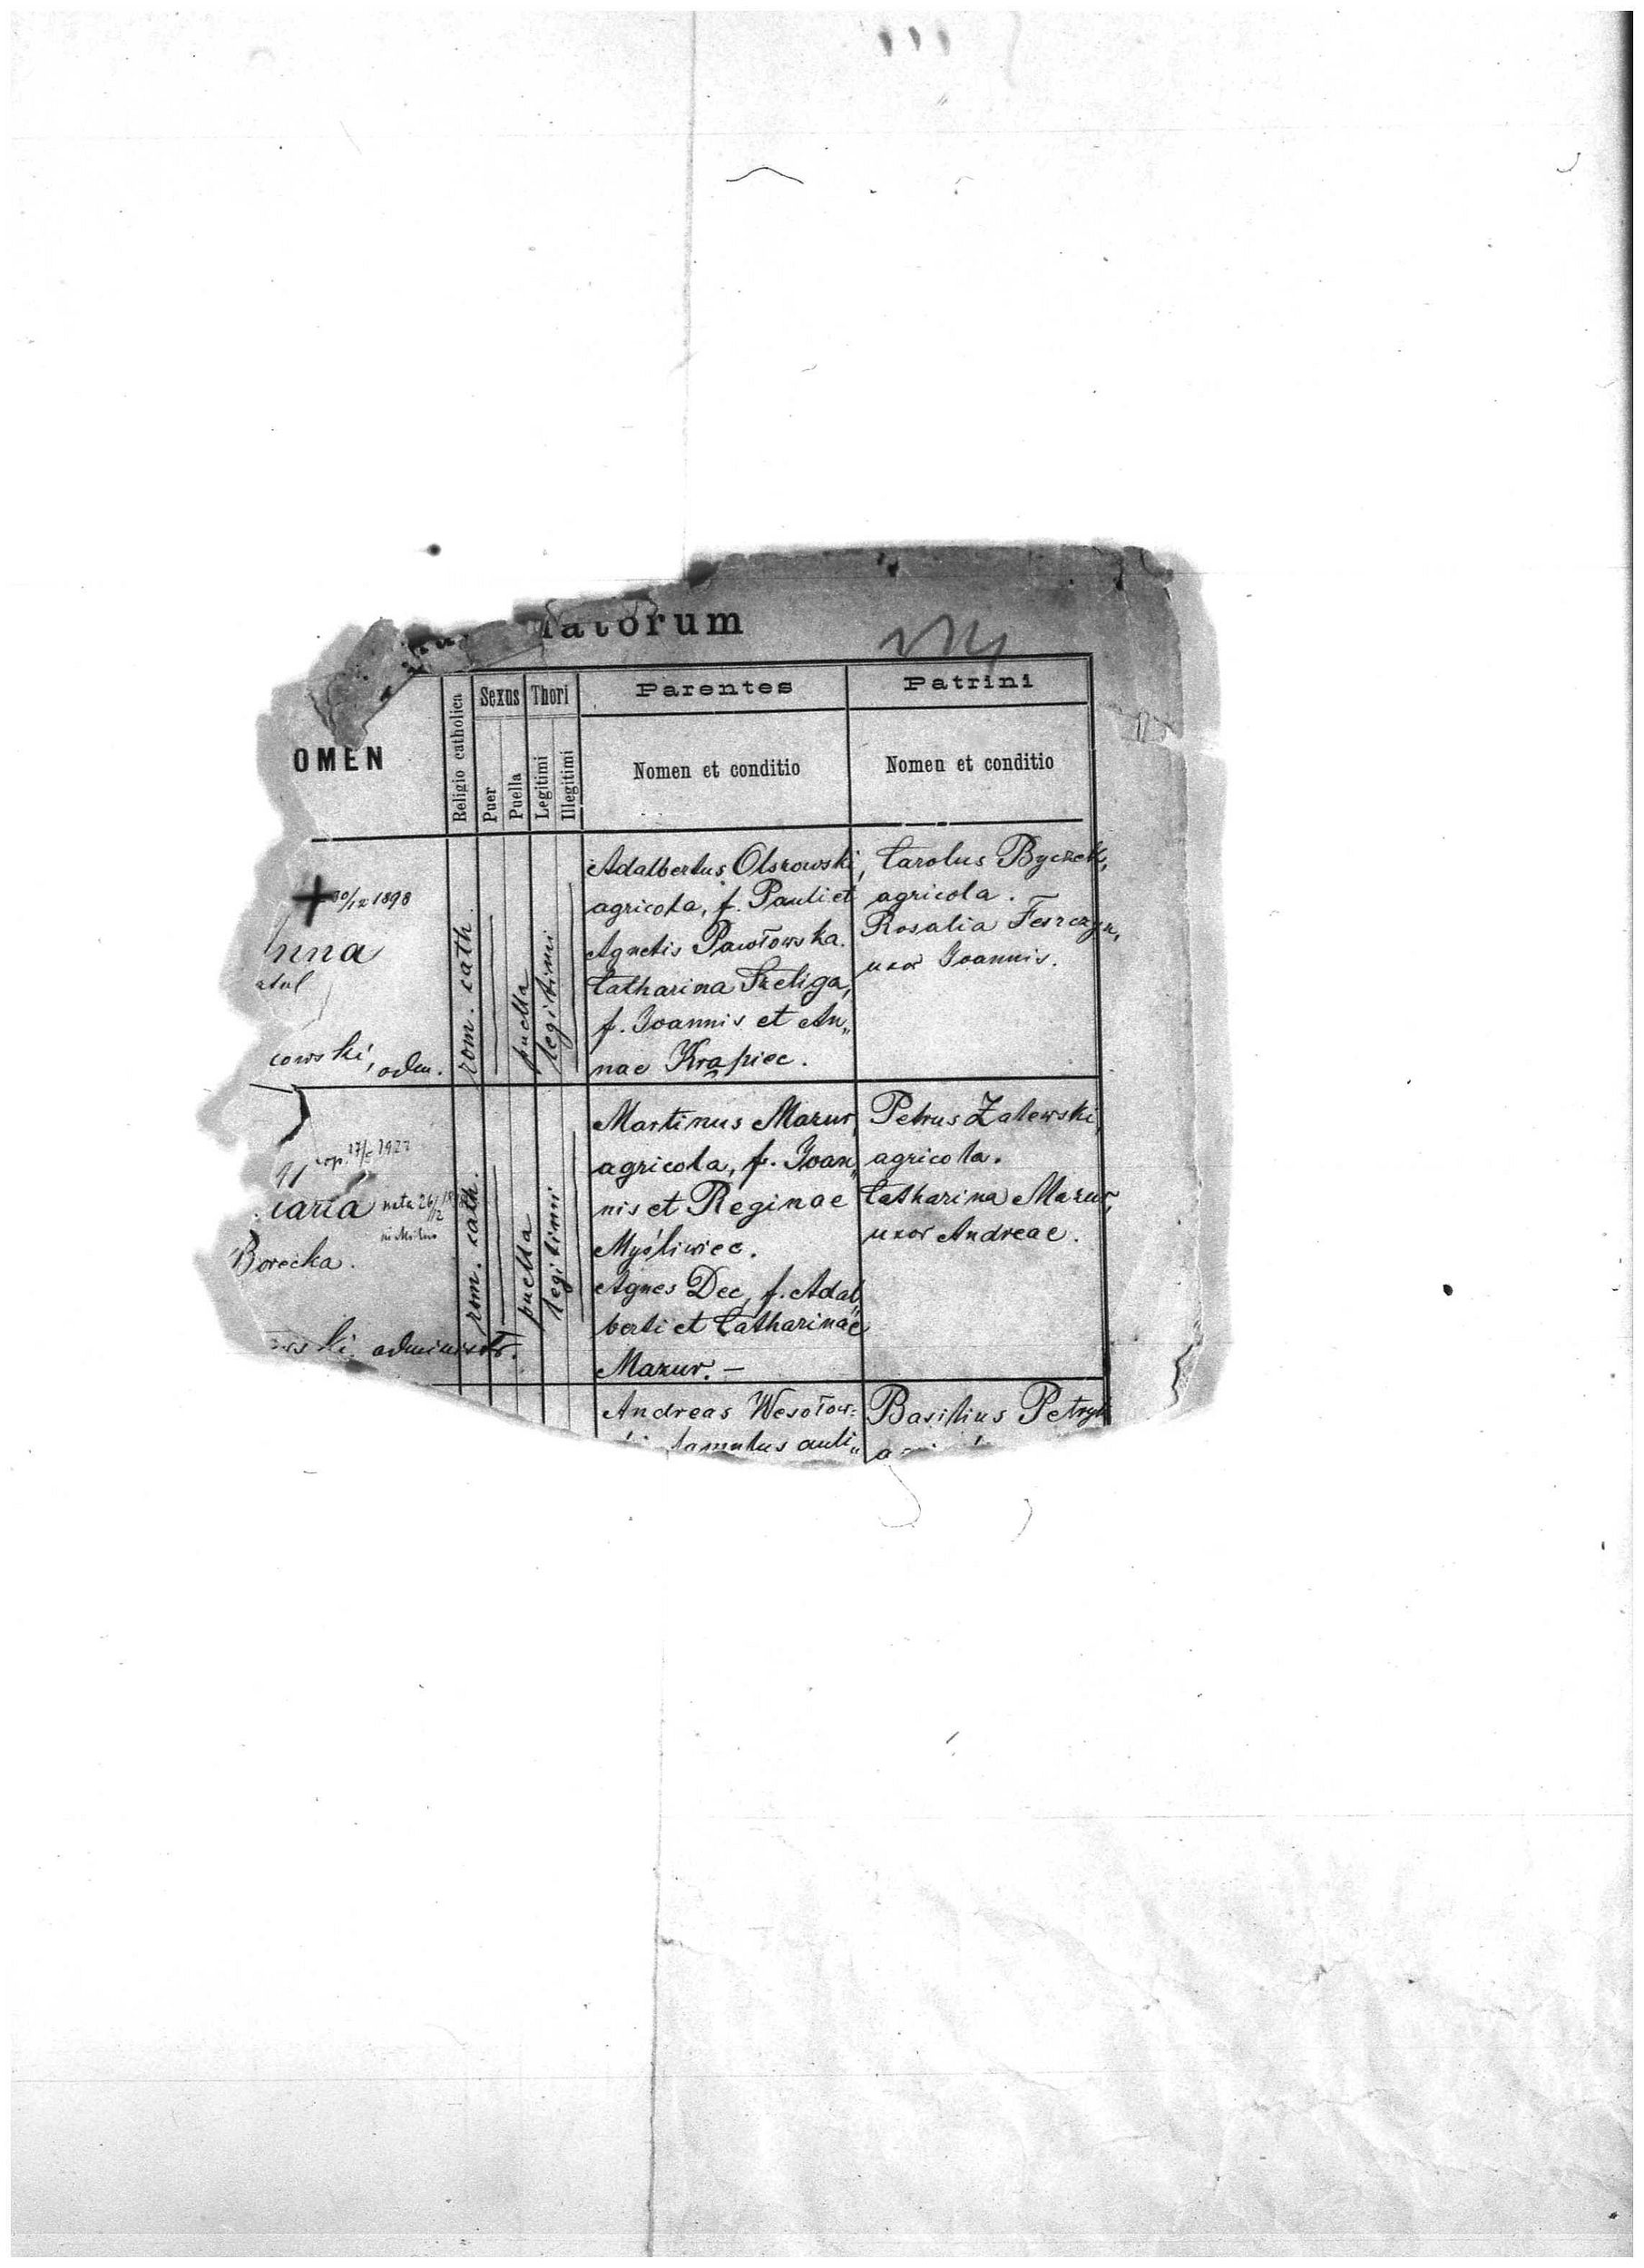 latorum
OMEN
Religio catholica
Sexus
Thori
Puer
Puella
Legitimi
Illegitimi
Parentes
Patrini
Nomen et conditio
Nomen et conditio
30/12 1898
nna
cowski, adm.
rom. cath.
puella
legitimi
Adalbertus Olszowski,
agricola, f. Pauli et
Agnetis Pawłowska.
Catharina Szeliga,
f. Joannis et An„
nae Krąpiec.
Carolus Byczek,
agricola.
Rosalia
uxor Joannis.
cop. 17/5 1922
aria nata 26/12
Borecka.
ski, administr.
rom. cath.
puella
legitimi
Martinus Mazur,
agricola, f. Joan„
nis et Reginae
Myśliwiec.
Agnes Dec, f. Adal„
berti et Catharinae
Mazur. –
Petrus Zalewski,
agricola.
Catharina Mazur,
uxor Andreae.
Andreas Wesołow:
famulus auli„
Basilius Petryk